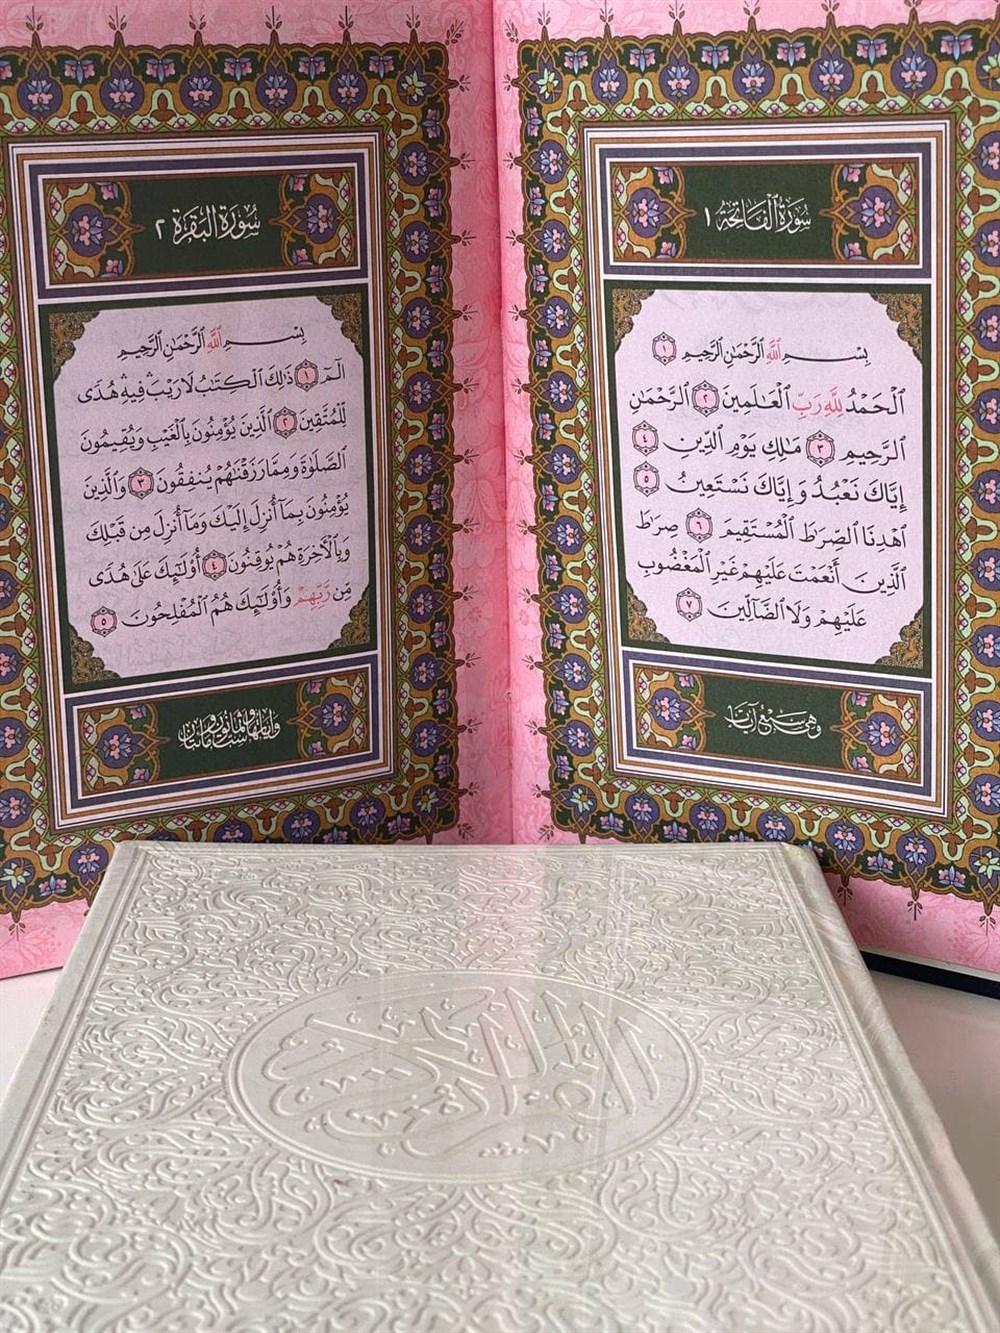 سُورَةُ ٱلْفَاتِحَةِ ١
بِسْمِ ٱللَّهِ ٱلرَّحْمَٰنِ ٱلرَّحِيمِ ١
ٱلْحَمْدُ لِلَّهِ رَبِّ ٱلْعَٰلَمِينَ ٢ ٱلرَّحْمَٰنِ
ٱلرَّحِيمِ ٣ مَٰلِكِ يَوْمِ ٱلدِّينِ ٤
إِيَّاكَ نَعْبُدُ وَإِيَّاكَ نَسْتَعِينُ ٥
ٱهْدِنَا ٱلصِّرَٰطَ ٱلْمُسْتَقِيمَ ٦ صِرَٰطَ
ٱلَّذِينَ أَنْعَمْتَ عَلَيْهِمْ غَيْرِ ٱلْمَغْضُوبِ
عَلَيْهِمْ وَلَا ٱلضَّآلِّينَ ٧
وهي سبع آيات
سُورَةُ ٱلْبَقَرَةِ ٢
بِسْمِ ٱللَّهِ ٱلرَّحْمَٰنِ ٱلرَّحِيمِ
الٓمٓ ١ ذَٰلِكَ ٱلْكِتَٰبُ لَا رَيْبَ ۛ فِيهِ ۛ هُدًى
لِّلْمُتَّقِينَ ٢ ٱلَّذِينَ يُؤْمِنُونَ بِٱلْغَيْبِ وَيُقِيمُونَ
ٱلصَّلَوٰةَ وَمِمَّا رَزَقْنَٰهُمْ يُنفِقُونَ ٣ وَٱلَّذِينَ
يُؤْمِنُونَ بِمَآ أُنزِلَ إِلَيْكَ وَمَآ أُنزِلَ مِن قَبْلِكَ
وَبِٱلْأَخِرَةِ هُمْ يُوقِنُونَ ٤ أُوْلَٰٓئِكَ عَلَىٰ هُدًى
مِّن رَّبِّهِمْ وَأُوْلَٰٓئِكَ هُمُ ٱلْمُفْلِحُونَ ٥
القرآن الكريم